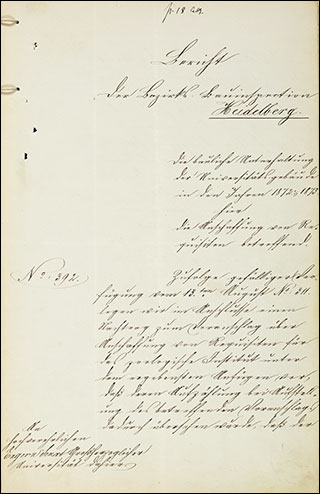 pr. 18 Aug.
Bericht
der Bezirks-Bauinspection
Heidelberg.
die bauliche Unterhaltung
der Universitätsgebäude
in den Jahren 1872 & 1873
hier
die Anschaffung von Re-
quisiten betreffend.
No. 392.
Zufolge gefälliger Ver-
fügung vom 13.ten August No.
legen wir im Anschlusse einen
Nachtrag zum Voranschlag über
Anschaffung von Requisiten für
das zoologische Institut unter
dem ergebensten Anfügen vor,
daß deren Aufzählung bei Aufstel-
lung des betreffenden Voranschlags
dadurch übersehen wurde, daß der
An
Großherzoglicher
Universität dahier.